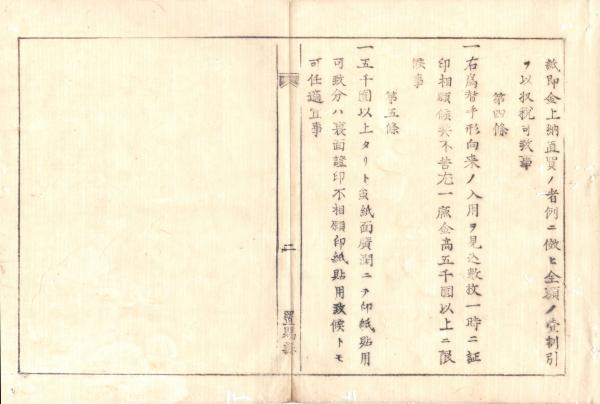 紙即金上納直買ノ者例ニ倣ヒ全額ノ壹割引
ヲ以収税可致事
第四條
一右為替手形向来ノ入用ヲ見込数枚一時ニ証
印相願候共不苦尤一席金高五千圓以上ニ限
候事
第五條
一五千圓以上タリト雖紙面廣濶ニテ印紙貼用
可致分ハ裏面證印不相願印紙貼用致候トモ
可任適宜事
二
置賜縣